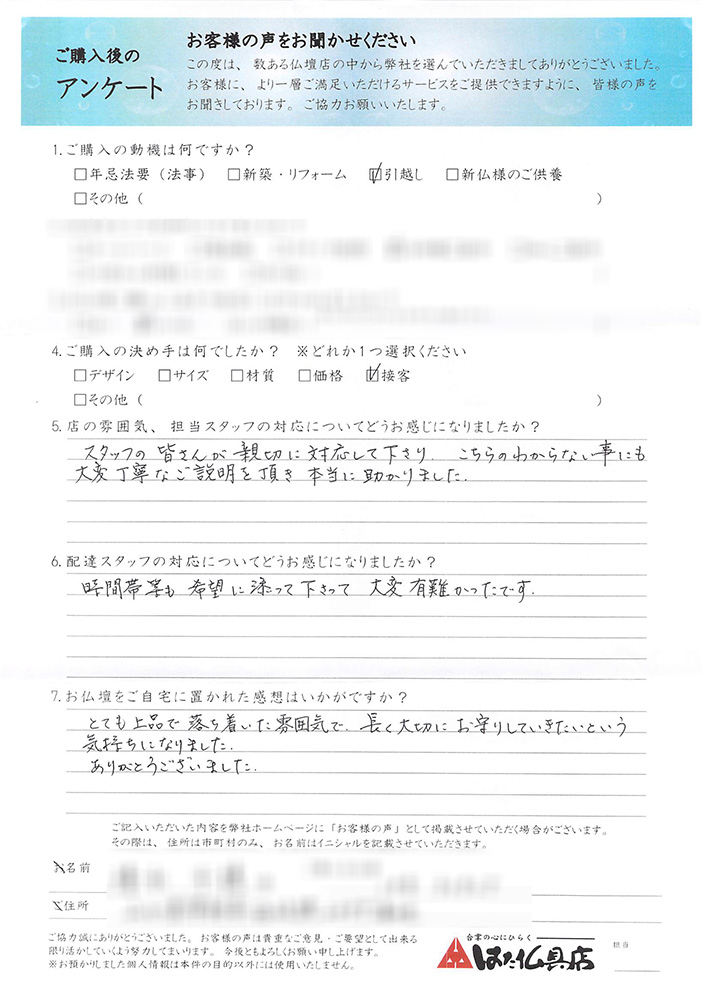 ご購入後の
アンケート
お客様の声をお聞かせください
この度は、数ある仏壇店の中から弊社を選んでいただきましてありがとうございました。
お客様に、より一層ご満足いただけるサービスをご提供できますように、皆様の声を
お聞きしております。ご協力お願いいたします。
1.ご購入の動機は何ですか？
□年忌法要（法事） □新築・リフォーム ☑引越し □新仏様のご供養
□その他（ ）
4.ご購入の決め手は何でしたか？ ※どれか1つ選択ください
□デザイン □サイズ □材質 □価格 ☑接客
□その他（ ）
5.店の雰囲気、担当スタッフの対応についてどうお感じになりましたか？
スタッフの皆さんが親切に対応して下さり、こちらのわからない事にも
大変丁寧なご説明を頂き本当に助かりました。
6.配達スタッフの対応についてどうお感じになりましたか？
時間帯等も希望に添って下さって大変有難かったです。
7.お仏壇をご自宅に置かれた感想はいかがですか？
とても上品で落ち着いた雰囲気で、長く大切にお守りしていきたいという
気持ちになりました。
ありがとうございました。
ご記入いただいた内容を弊社ホームページに「お客様の声」として掲載させていただく場合がございます。
その際は、住所は市町村のみ、お名前はイニシャルを記載させていただきます。
お名前
ご住所
ご協力誠にありがとうございました。お客様の声は貴重なご意見・ご要望として出来る
限り活かしていくよう努力してまいります。今後ともよろしくお願い申し上げます。
※お預かりしました個人情報は本件の目的以外には使用いたしません。
合掌の心にひらく
はた仏具店
担当